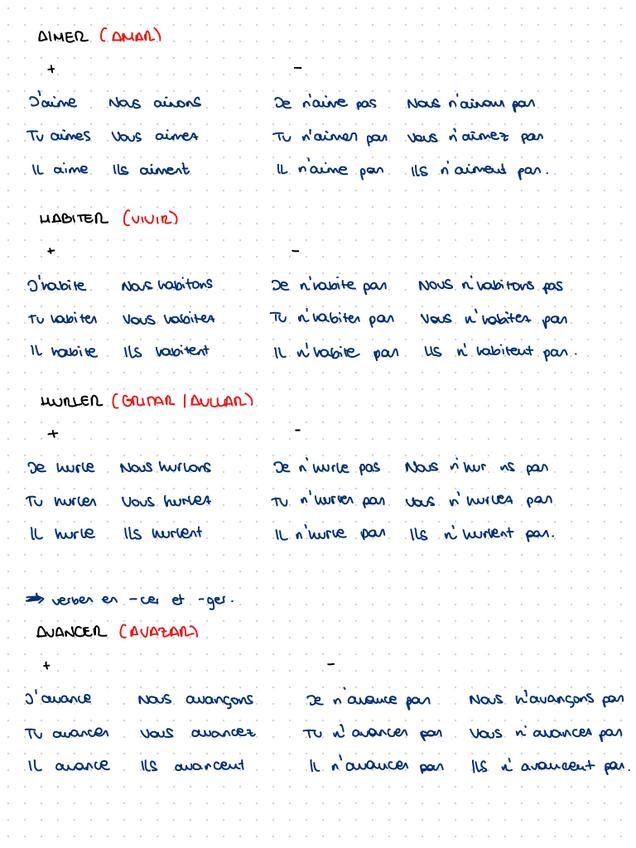 AIMER (AMAR)
+ -
J'aime Nous aimons Je n'aime pas Nous n'aimons pas
Tu aimes Vous aimez Tu n'aimes pas Vous n'aimez pas
Il aime Ils aiment Il n'aime pas Ils n'aiment pas.
HABITER (VIVIR)
+ -
J'habite Nous habitons Je n'habite pas Nous n'habitons pas
Tu habites Vous habitez Tu n'habites pas Vous n'habitez pas
Il habite Ils habitent Il n'habite pas Ils n'habitent pas.
HURLER (GRITAR / AULLAR)
+ -
Je hurle Nous hurlons Je n'hurle pas Nous n'hur ns pas
Tu hurles Vous hurlez Tu n'hurles pas Vous n'hurlez pas
Il hurle Ils hurlent Il n'hurle pas Ils n'hurlent pas.
⇒ verbes en -cer et -ger.
AVANCER (AVAZAR)
+ -
J'avance Nous avançons Je n'avance pas Nous n'avançons pas
Tu avances Vous avancez Tu n'avances pas Vous n'avancez pas
Il avance Ils avancent Il n'avances pas Ils n'avancent pas.